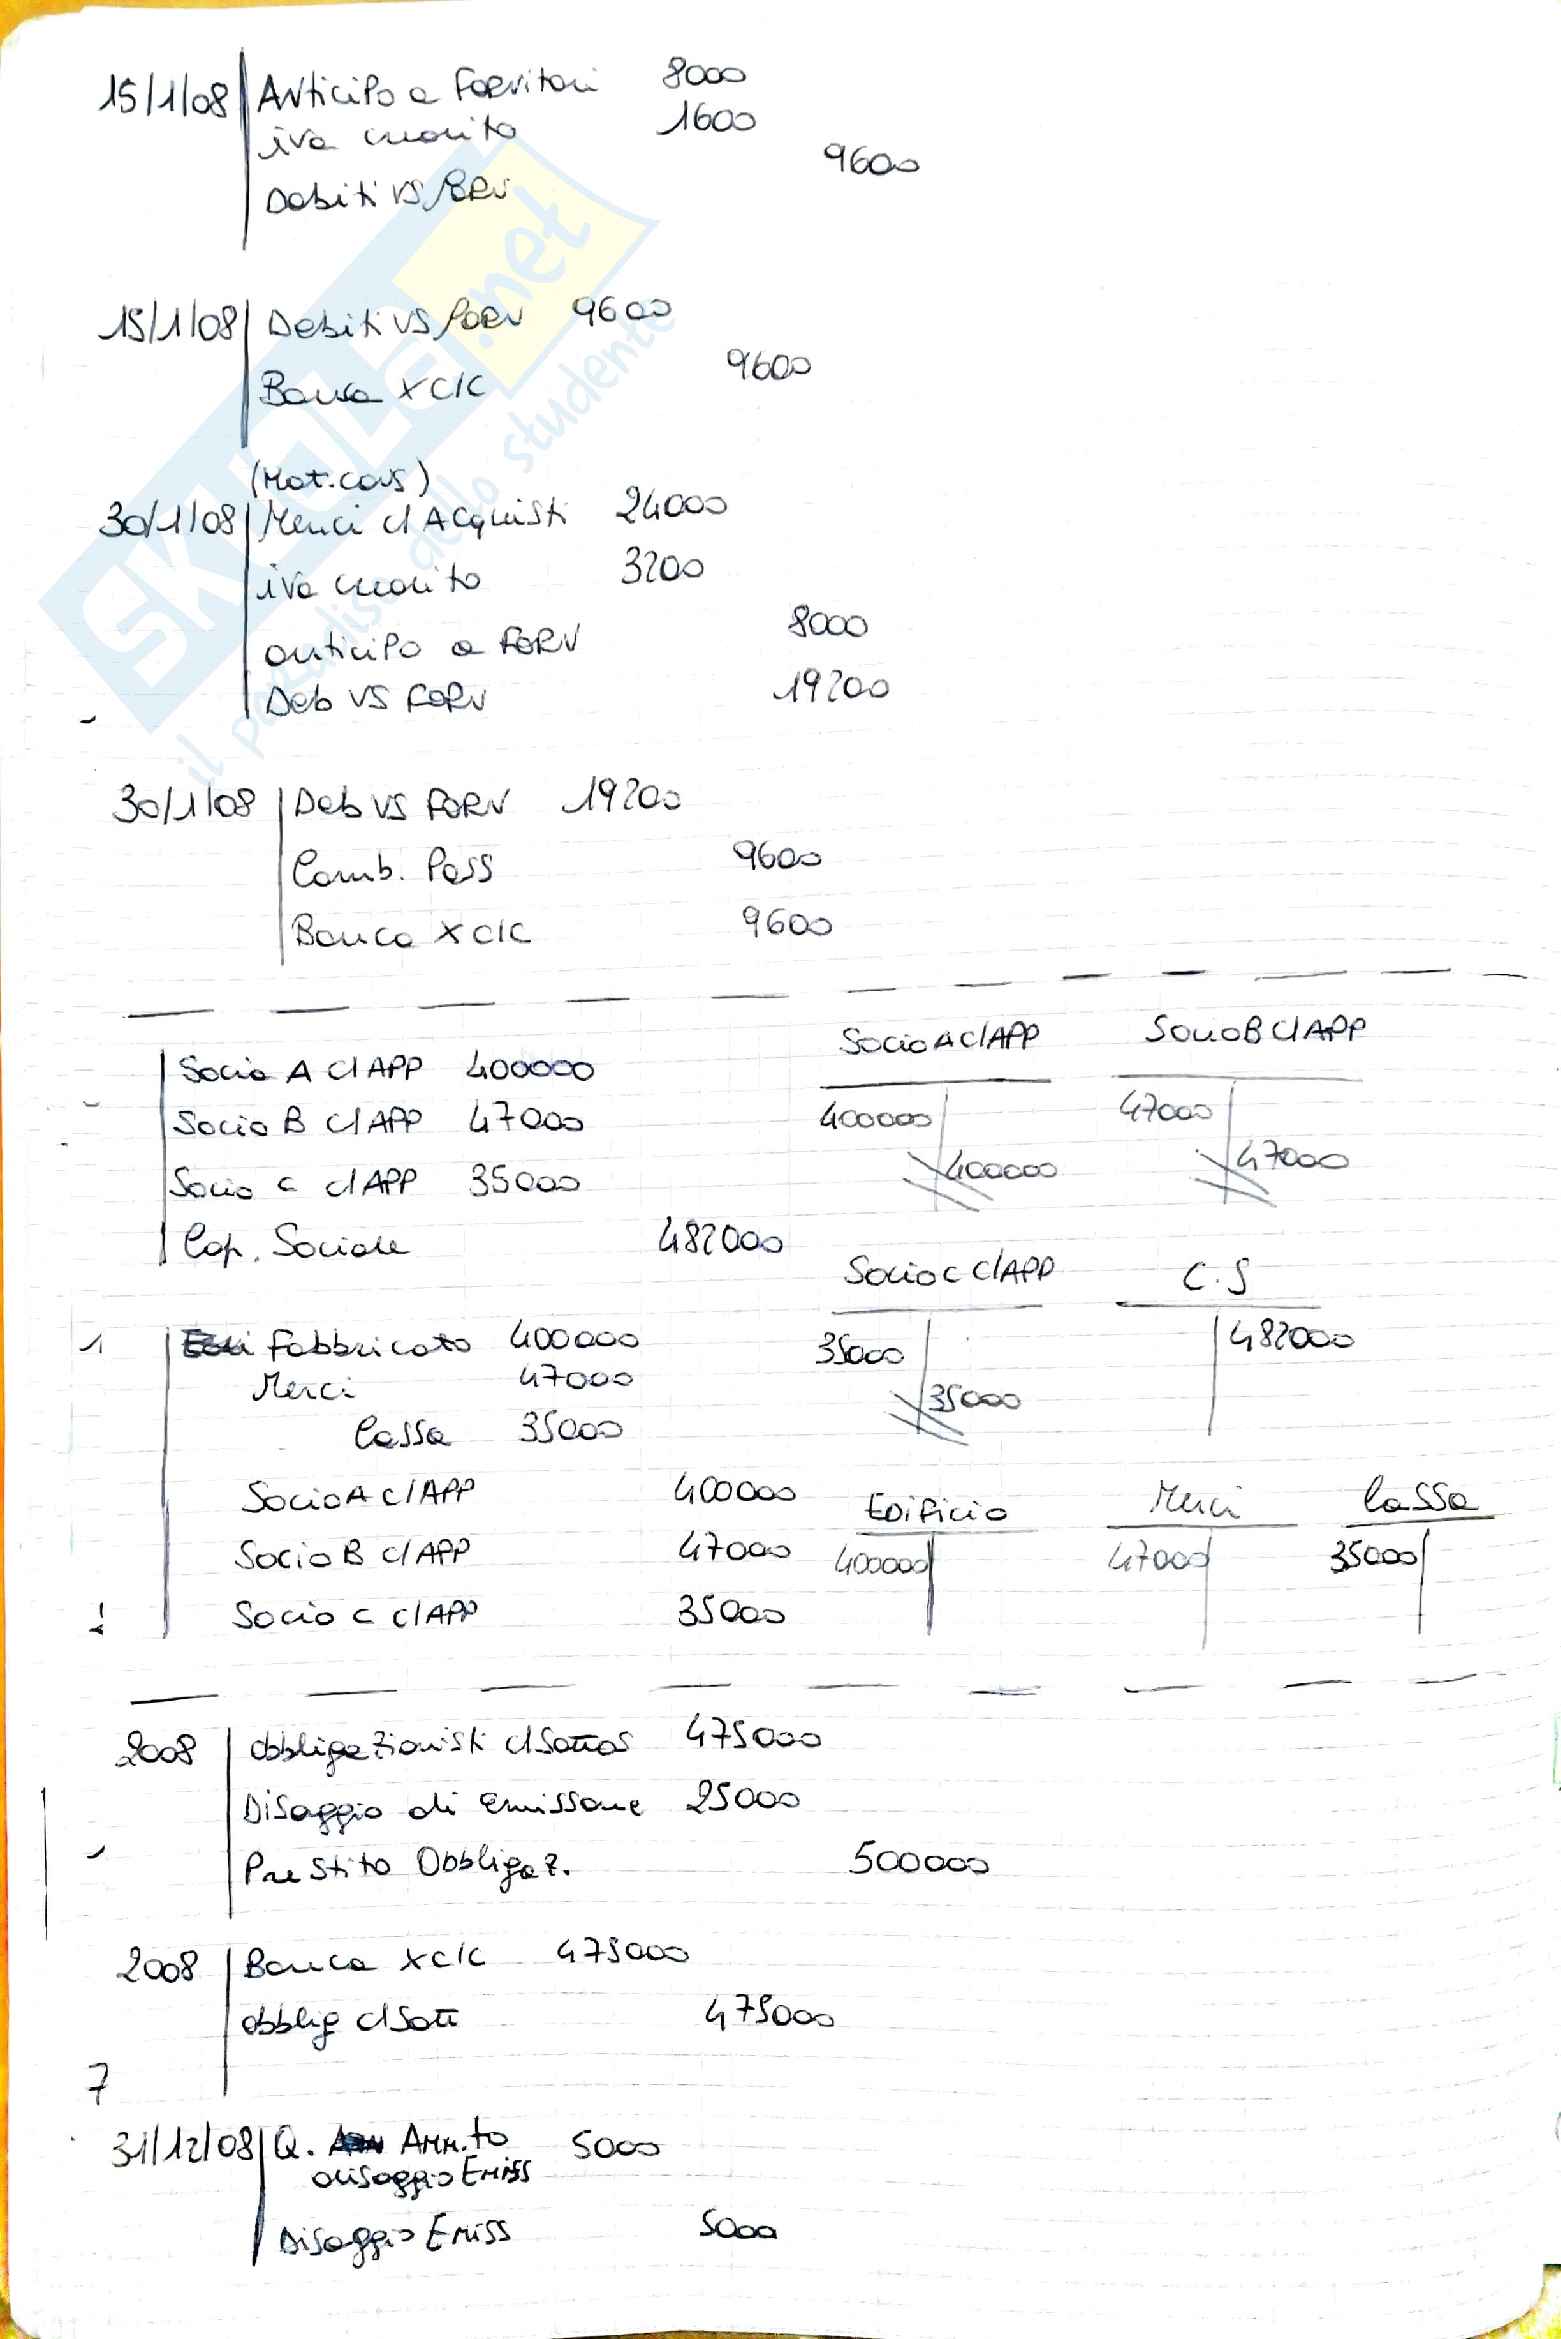 15/1/08 Anticipo a Fornitori 8000
iva credito 1600
9600
Debiti vs Forn
15/1/08 Debiti vs Forn 9600
Banca x c/c 9600
(Mat. cons)
30/1/08 Merci c/Acquisti 24000
iva credito 3200
anticipo a Forn 8000
Deb vs Forn 19200
30/1/08 Deb vs Forn 19200
Camb. Pass 9600
Banca x c/c 9600
Socio A c/APP 400000
Socio B c/APP 47000
Socio C c/APP 35000
Cap. Sociale 482000
Socio A c/APP Socio B c/APP
400000 47000
400000 47000
Socio C c/APP C.S
35000 482000
35000
1 Fabbricato 400000
Merci 47000
Cassa 35000
Socio A c/APP 400000
Socio B c/APP 47000
Socio C c/APP 35000
Edificio Merci Cassa
400000 47000 35000
2008 Obbligazionisti c/Sottos 475000
Disaggio di emissione 25000
Prestito Obbligaz. 500000
2008 Banca x c/c 475000
obblig c/Sott 475000
7
31/12/08 Q. Amm.to 5000
disaggio Emiss
Disaggio Emiss 5000
SKUOLA.net
il paradiso dello studente